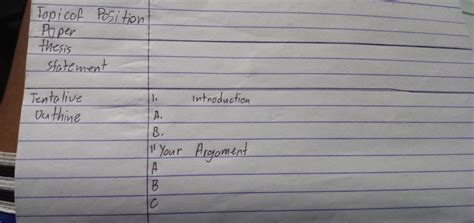 Topic of Position
Paper
thesis
statement
Tentalive
Outhine
1. introduction
A.
B.
11 Your Argoment
A
B
C